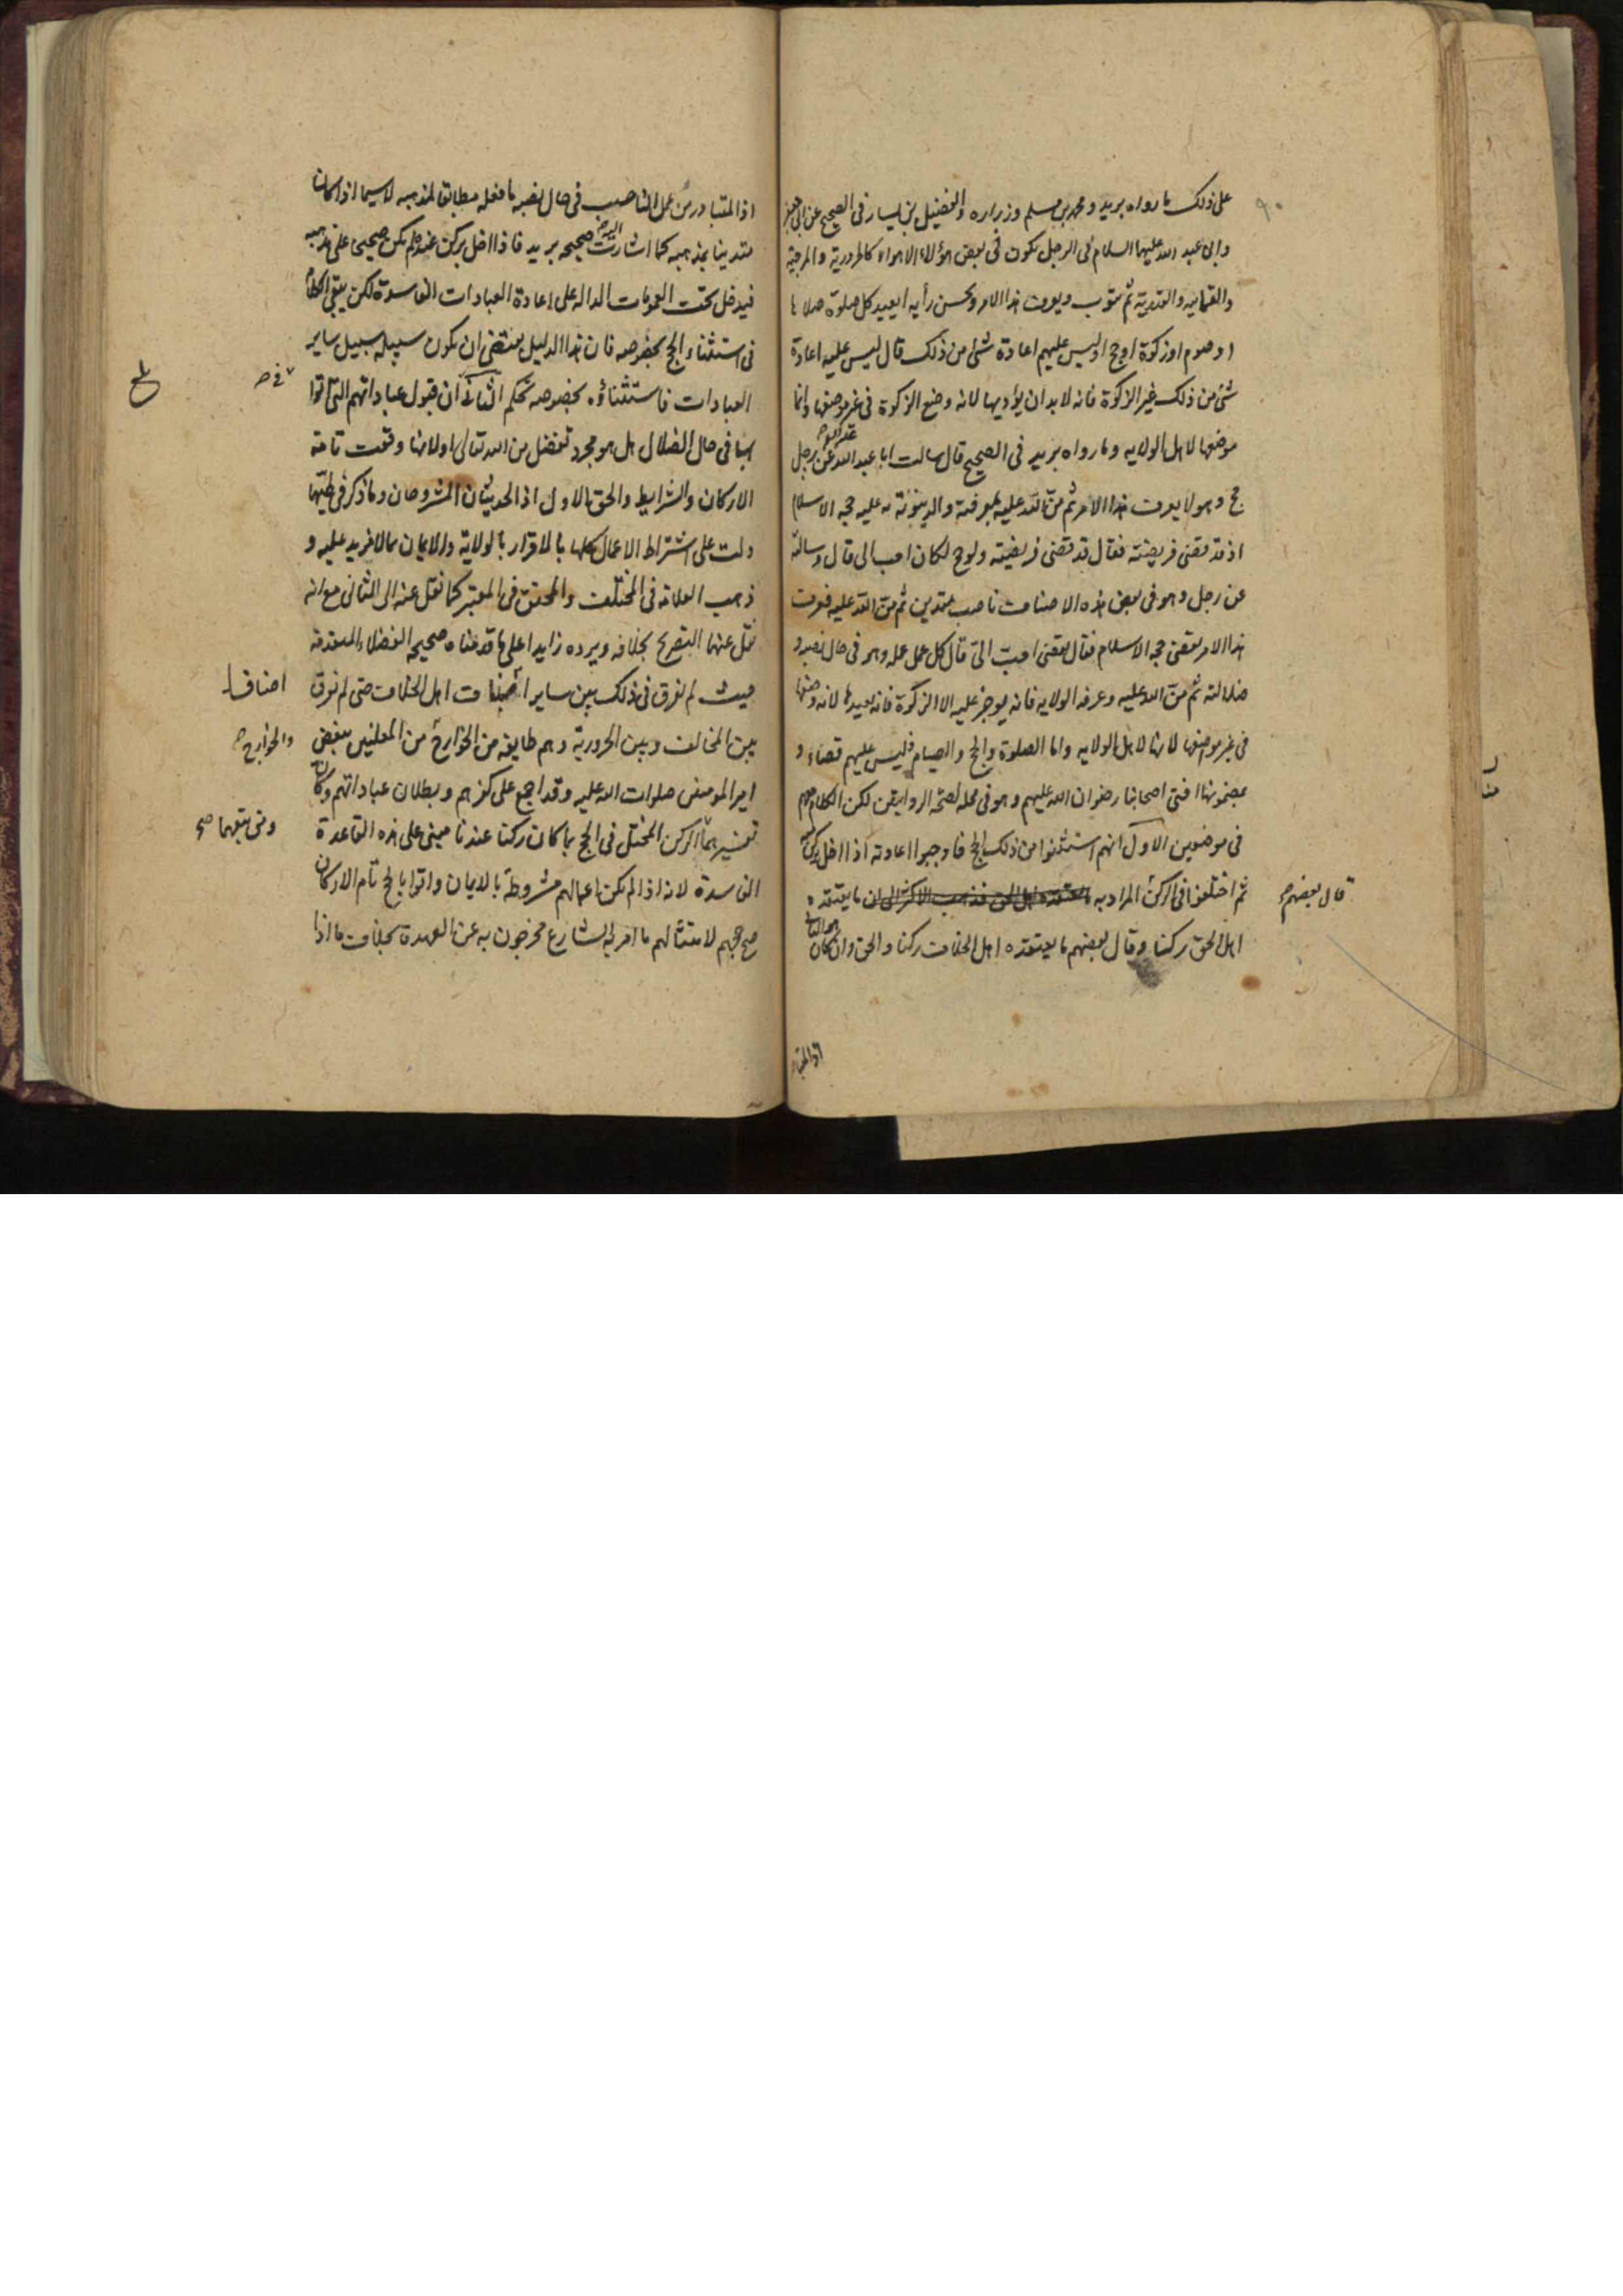 على ذلك ما رواه بريد ومحمد بن مسلم وزراره والفضيل بن يسار في الصحيح عن ابي جعفر
وابي عبد الله عليهما السلام في الرجل يكون في بعض هؤلاء الاهواء كالحرورية والمرجية
والعثمانيه والقدرية ثم يتوب ويعرف هذا الامر ويحسن رأيه ايعيد كل صلوة صلاها
او صوم او زكوة او حج او ليس عليهم اعادة شئ من ذلك قال ليس عليه اعادة
شئ من ذلك غير الزكوة فانه لا بد ان يؤديها لانه وضع الزكوة في غير موضعها وانما
موضعها لاهل الولايه وما رواه بريد في الصحيح قال سالت ابا عبد الله عليه السلام عن رجل
حج وهو لا يعرف هذا الامر ثم من الله عليه بمعرفته والدينونة به عليه حجة الاسلام
او قد قضى فريضته فقال قد قضى فريضته ولو حج لكان احب الي قال وسالته
عن رجل وهو في بعض هذه الاصناف ناصب متدين ثم من الله عليه فعرف
هذا الامر يقضي حجة الاسلام فقال يقضي احب الي قال كل عمل عمله وهو في حال نصبه و
ضلالته ثم من الله عليه وعرفه الولايه فانه يوجر عليه الا الزكوة فانه يعيدها لانه وضعها
في غير موضعها لانها لاهل الولايه واما الصلوة والحج والصيام فليس عليهم قضاء و
بمضمونها افتى اصحابنا رضوان الله عليهم وهو في محله لصحة الروايتين لكن الكلام معهم
في موضعين الاول انهم استثنوا من ذلك الحج فاوجبوا اعادته اذا اخل بركن
ثم اختلفوا في الركن المراد به ما يعتقده
قال بعضهم
اهل الحق ركنا وقال بعضهم ما يعتقده اهل الخلاف ركنا والحق وان كان هو الثاني
اذ المتبا
اذ المتبادر من عمل الناصب في حال نصبه ما فعله مطابق لمذهبه لا سيما اذا كان
متدينا بمذهبه كما اشارت اليه صحيحه بريد فاذا اخل بركن عنده لم يكن صحيحا على مذهبه
فيدخل تحت العمومات الداله على اعادة العبادات الفاسدة لكن يبقى الكلام
في استثناء الحج بخصوصه فان هذا الدليل يقتضي ان يكون سبيله سبيل ساير
العبادات فاستثناؤه بخصوصه تحكم الثاني ان قبول عباداتهم التي اتوا
بها في حال الضلال هل هو مجرد تفضل من الله تعالى او لانها وقعت تامة
الاركان والشرايط والحق الاول اذ الحديثان المشروحان وما ذكر في طيهما
دلت على اشتراط الاعمال كلها بالاقرار بالولاية والايمان بما لا مزيد عليه و
ذهب العلامه في المختلف والمحقق في المعتبر كما نقل عنه الى الثاني مع انه
نقل عنهما التصريح بخلافه ويرده زايدا على ما قدمناه صحيحه الفضلاء المتقدمة
حيث لم تفرق في ذلك بين ساير اصناف اهل الخلاف حتى لم تفرق
اصناف
بين المخالف وبين الحرورية وهم طايفه من الخوارج من المعلنين ببغض
والخوارج
امير المؤمنين صلوات الله عليه وقد اجمع على كفرهم وبطلان عباداتهم وكان
تفسيرهما الركن المختل في الحج بما كان ركنا عندنا مبني على هذه القاعدة
ومن يتبعهما صح
الفاسدة لانه اذا لم يكن اعمالهم مشروطة بالايمان واتوا بالحج تام الاركان
صح حجهم لامتثالهم ما امر به الشارع فخرجون به عن العهدة بخلاف ما اذا